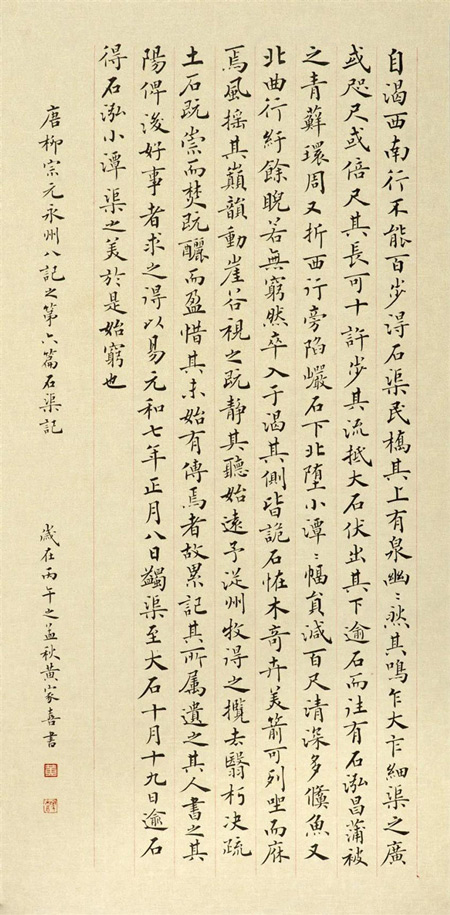 自渴西南行不能百步得石渠民橋其上有泉幽〻然其鳴乍大乍細渠之廣
或咫尺或倍尺其長可十許步其流抵大石伏出其下逾石而往有石泓昌蒲被
之青蘚環周又折西行旁陷巖石下北墮小潭〻幅員減百尺清深多鯈魚又
北曲行紆餘睨若無窮然卒入于渴其側皆詭石恠木奇卉美箭可列坐而庥
焉風搖其巔韻動崖谷視之既靜其聽始遠予從州牧得之攬去翳朽決疏
土石既崇而焚既釃而盈惜其未始有傳焉者故累記其所屬遺之其人書之其
陽俾後好事者求之得以易元和七年正月八日蠲渠至大石十月十九日逾石
得石泓小潭渠之美於是始窮也
唐柳宗元永州八記之第六篇石渠記
歲在丙午之孟秋黄家喜書